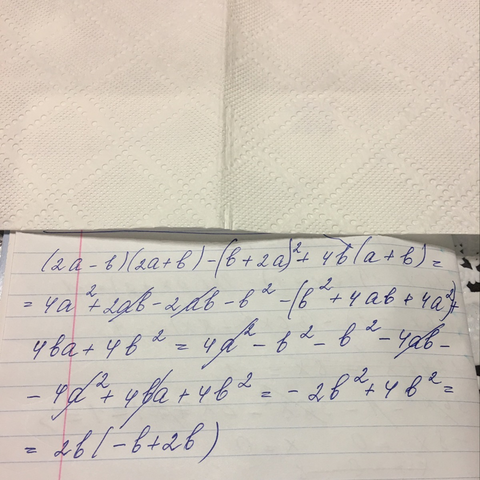 (2a-b)(2a+b)-(b+2a)²+4b(a+b)=
=4a²+2ab-2ab-b²-(b²+4ab+4a²)+
4ba+4b²=4a²-b²-b²-4ab-
-4a²+4ba+4b²=-2b²+4b²=
=2b(-b+2b)